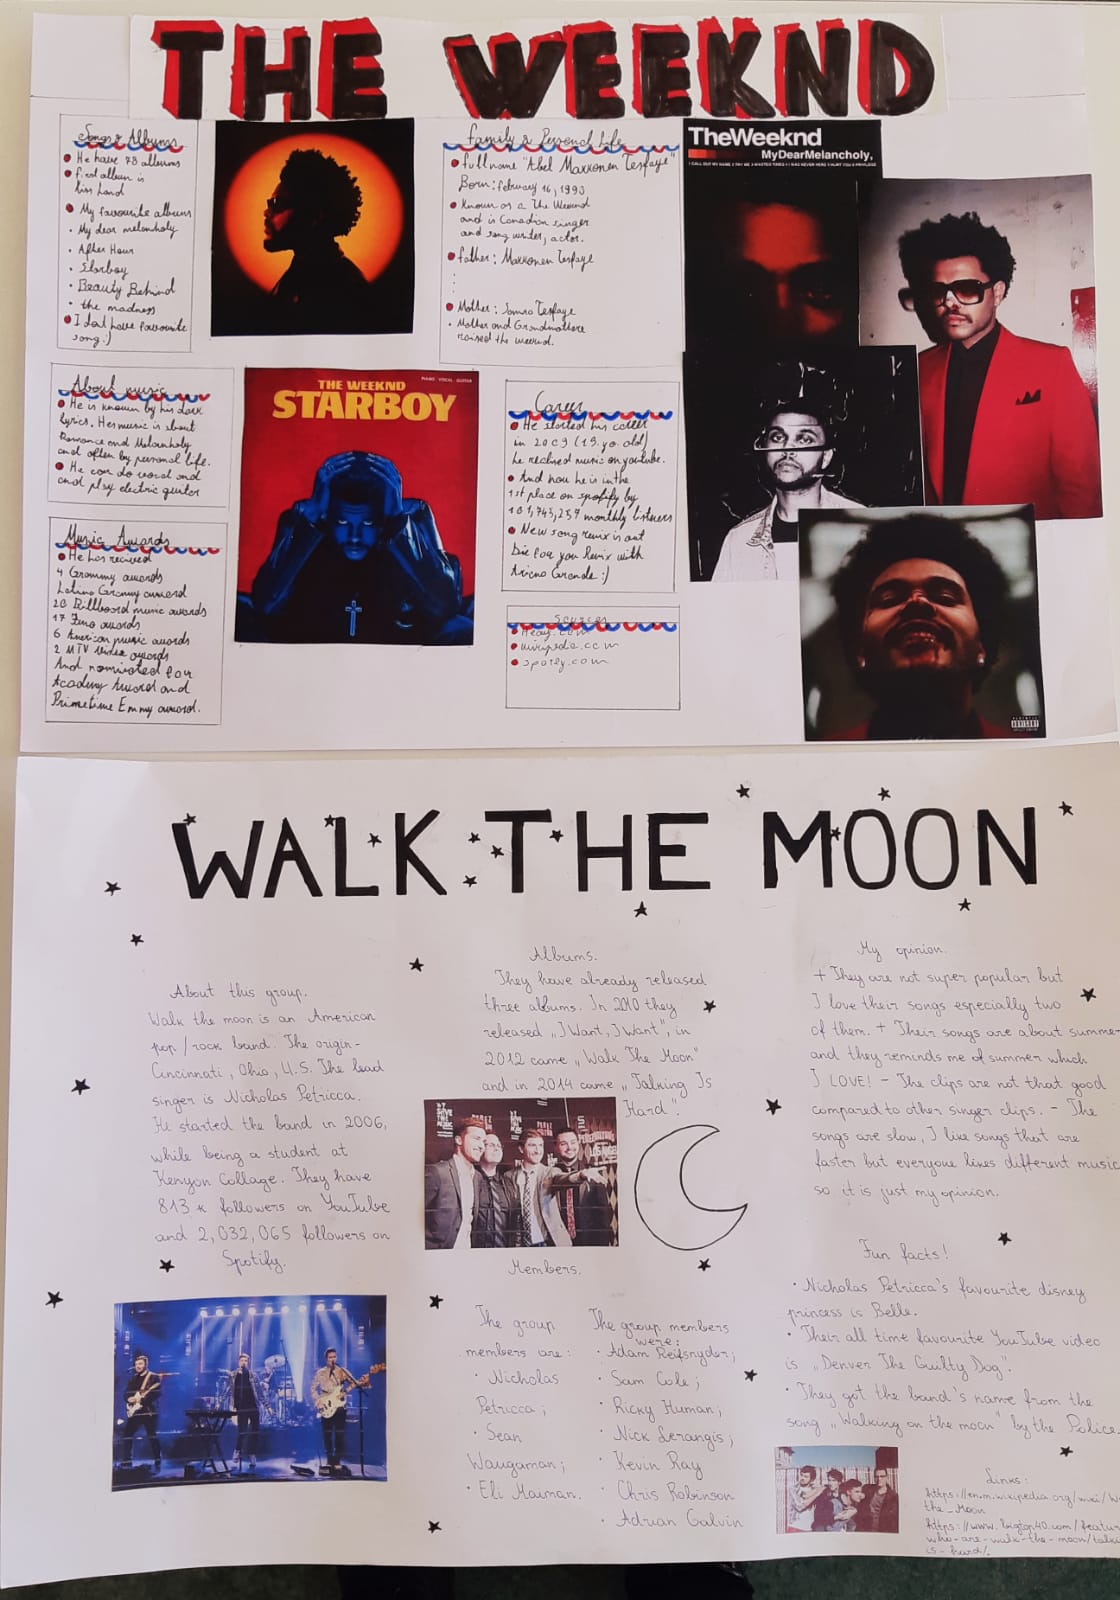 THE WEEKND
Songs & Albums
He have 78 albums
first album is
his Land
My favourite albums
My dear melancholy
After Hour
Starboy
Beauty Behind
the madness
I dont have favourite
song:)
Family & Personal Life
full name "Abel Makkonen Tesfaye"
Born: february 16, 1990
Known as a The Weeknd
and is Canadian singer
and song writer, actor.
father: Makkonen Tesfaye
Mother: Samra Tesfaye
Mother and Grandmothere
raised the weeknd.
TheWeeknd
MyDearMelancholy,
About music
He is known by his dark
lyrics. Hes music is about
Romance and Melancholy
and often by personal life.
He can do vocal and
and play electric guitar
PIANO VOCAL GUITAR
THE WEEKND
STARBOY
Career
He started his career
in 2009 (19. yo. old)
he realised music on youtube.
And now he is in the
1st place on spotify by
101,743,257 monthly listners
New song remix is out
Die for you Remix with
Ariana Grande :)
Music Awards
He has recived
4 Grammy awards
Latino Grammy award
20 Billboard music awards
17 Juno awards
6 American music awards
2 MTV Video awards
And nominated for
Academy Award and
Primetime Emmy award.
Sources
wikipedia.com
spotify.com
PARENTAL
ADVISORY
WALK THE MOON
About this group.
Walk the moon is an American
pop / rock band. The origin -
Cincinnati, Ohio, U.S. The lead
singer is Nicholas Petricca.
He started the band in 2006,
while being a student at
Kenyon Collage. They have
813 k followers on YouTube
and 2,032,065 followers on
Spotify.
Albums.
They have already released
three albums. In 2010 they
released „I Want, I Want", in
2012 came „Walk The Moon"
and in 2014 came „Talking Is
Hard".
Members.
The group
members are:
· Nicholas
Petricca;
· Sean
Waugaman;
· Eli Maiman.
The group members
were:
· Adam Reifsnyder;
· Sam Cole;
· Ricky Human;
· Nick Lerangis;
· Kevin Ray
· Chris Robinson
· Adrian Galvin
My opinion.
+ They are not super popular but
I love their songs especially two
of them. + Their songs are about summer
and they reminds me of summer which
I LOVE! - The clips are not that good
compared to other singer clips. - The
songs are slow, I like songs that are
faster but everyone likes different music
so it is just my opinion.
Fun facts!
· Nicholas Petricca's favourite disney
princess is Belle.
· Their all time favourite YouTube video
is „Denver The Guilty Dog".
· They got the band's name from the
song „Walking on the moon" by the Police.
Links:
https://en.m.wikipedia.org/wiki/
the_Moon
https://www.bigtop40.com/
who-are-walk-the-moon/
is-hard/.